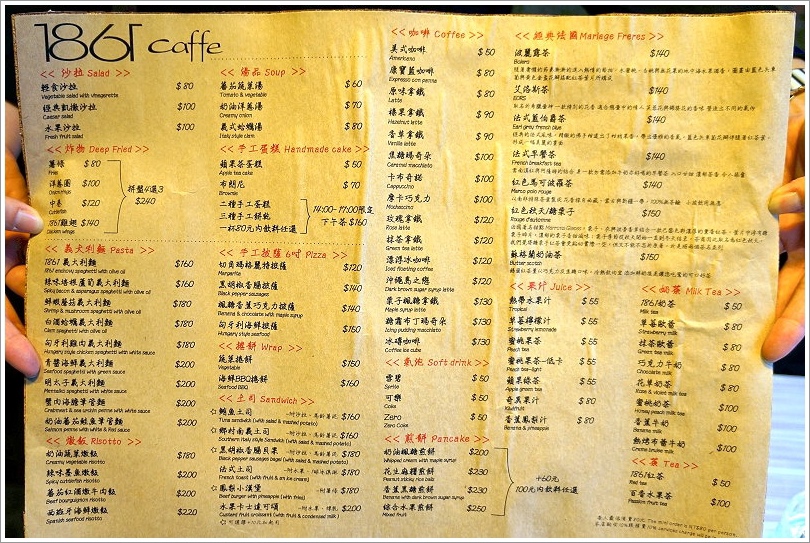 1861 caffe
<< 沙拉 Salad >>
輕食沙拉 $80
Vegetable salad with vinegarette
經典凱撒沙拉 $100
Caesar salad
水果沙拉 $100
Fresh fruit salad
<< 炸物 Deep Fried >>
薯條 $80
Fries
洋蔥圈 $100
Onion rings
中卷 $120
Cuttlefish
1861雞翅 $140
Chicken wings
拼盤4選3
$240
<< 義大利麵 Pasta >>
1861 義大利麵 $160
1861 anchovy spaghetti with olive oil
辣味培根蘆筍義大利麵 $160
Spicy bacon & asparagus spaghetti with olive oil
鮮蝦蘑菇義大利麵 $180
Shrimp & mushroom spaghetti with olive oil
白酒蛤蠣義大利麵 $180
Clam spaghetti with olive oil
匈牙利雞肉義大利麵 $180
Hungary style chicken spaghetti with white sauce
青醬海鮮義大利麵 $200
Seafood spaghetti with green sauce
明太子義大利麵 $200
Mentaiko spaghetti with white sauce
蟹肉海膽筆管麵 $200
Crabmeat & sea urchin penne with white sauce
奶油蕃茄鮭魚筆管麵 $200
Salmon penne with white & Red sauce
<< 燉飯 Risotto >>
奶油蔬菜燉飯 $180
Creamy vegetable risotto
辣味墨魚燉飯 $180
Spicy cuttlefish risotto
蕃茄紅酒燉牛肉飯 $200
Beef bourguignon risotto
西班牙海鮮燉飯 $220
Spanish seafood risotto
<< 湯品 Soup >>
蕃茄蔬菜湯 $60
Tomato & vegetable
奶油洋蔥湯 $70
Creamy onion
義式蛤蠣湯 $80
Italy style clam
<< 手工蛋糕 Handmade cake >>
蘋果茶蛋糕 $50
Apple tea cake
布朗尼 $70
Brownie
二種手工蛋糕
三種手工餅乾
一杯80元內飲料任選
14:00-17:00限定
下午茶 $160
<< 手工披薩 6吋 Pizza >>
切角瑪格麗特披薩 $120
Margarita
黑胡椒香腸披薩 $140
Black pepper sausages
楓糖香蕉巧克力披薩 $140
Banana & chocolate with maple syrup
匈牙利海鮮披薩 $150
Hungary style seafood
<< 捲餅 Wrap >>
蔬菜捲餅 $150
Vegetable
海鮮BBQ捲餅 $160
Seafood BBQ
<< 土司 Sandwich >>
鮪魚土司 -附沙拉、馬鈴薯泥 $160
Tuna sandwich (with salad & mashed potato)
鄉村南義土司 -附沙拉、馬鈴薯泥 $160
Southern Italy style Sandwich (with salad & mashed potato)
黑胡椒香腸貝果 -附沙拉、馬鈴薯泥 $180
Black pepper sausages bagel (with salad & mashed potato)
法式土司 -附水果、冰淇淋 $180
French toast (with fruit & an ice cream)
鳳梨小漢堡 -附薯條 $180
Beef burger with pineapple (with fries)
水果卡士達可頌 -附水果、煉乳 $200
Custard fruit croissant (with fruit & condensed milk)
<< 咖啡 Coffee >>
美式咖啡 $50
Americano
康寶藍咖啡 $80
Espresso con panna
原味拿鐵 $80
Latte
榛果拿鐵 $90
Hazelnut latte
香草拿鐵 $90
Vanilla latte
焦糖瑪奇朵 $100
Caramel macchiato
卡布奇諾 $100
Cappuccino
摩卡巧克力 $100
Mochaccino
玫瑰拿鐵 $120
Rose latte
抹茶拿鐵 $120
Green tea latte
漂浮冰咖啡 $120
Iced floating coffee
沖繩島之戀 $120
Dark brown sugar syrup latte
栗子楓糖拿鐵 $130
Marron maple syrup latte
糖霜布丁瑪奇朵 $130
Icing pudding macchiato
冰磚咖啡 $130
Coffee ice cube
<< 氣泡 Soft drink >>
雪碧 $50
Sprite
可樂 $50
Coke
Zero $50
Zero Coke
<< 煎餅 Pancake >>
奶油楓糖煎餅 $200
Whipped cream with maple syrup
花生麻糬煎餅 $230
Peanut sticky rice balls
香蕉黑糖煎餅 $230
Banana with dark brown sugar syrup
綜合水果煎餅 $250
Mixed fruit
+60元
100元內飲料任選
<< 經典法國Mariage Freres >>
波麗露茶 $140
Bolero
艾洛斯茶 $140
EORS
法式藍伯爵茶 $140
Earl grey french blue
法式早餐茶 $140
French breakfast tea
紅色馬可波羅茶 $140
Marco polo rouge
紅色秋天/糖栗子 $150
Rouge d'automne
蘇格蘭奶油茶 $150
Butter scotch
<< 果汁 Juice >>
熱帶水果汁 $55
Tropical
草莓檸檬汁 $55
Strawberry lemonade
蜜桃果茶 $55
Peach tea
蜜桃果茶-低卡 $55
Peach tea-light
蘋果綠茶 $55
Apple green tea
奇異果汁 $80
Kiwifruit
香蕉鳳梨汁 $80
Banana & pineapple
<< 奶茶 Milk Tea >>
1861奶茶 $50
Milk tea
草莓歐蕾 $80
Strawberry milk
抹茶歐蕾 $80
Green milk tea
巧克力牛奶 $80
Chocolate milk
花草奶茶 $80
Rose & violet milk tea
蜜桃奶茶 $100
Honey peach milk tea
香蕉牛奶 $100
Banana milk
熱烤布蕾牛奶 $100
Creme brulee milk
<< 茶 Tea >>
1861紅茶 $50
Red tea
百香水果茶 $100
Passion fruits tea